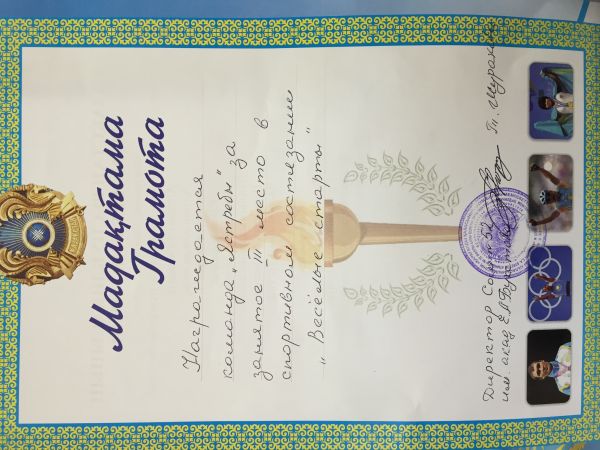 Мадақтама
Грамота
Награждается
команда „Ястребы" за
занятое III место в
спортивном состязании
„Весёлые старты"
Директор
им. акад. Е.А.